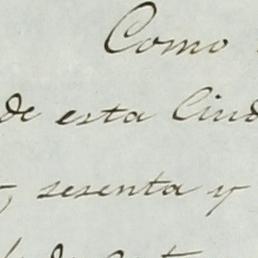 Como
de esta Ciud
sesenta y